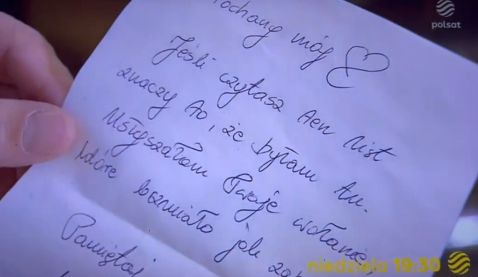 polsat
ochany mój
Jeśli czytasz ten list
znaczy to, że byłam tu.
Usłyszałam Twoje wołanie
które brzmiało jak
Pamiętaj
niedziela 19:30